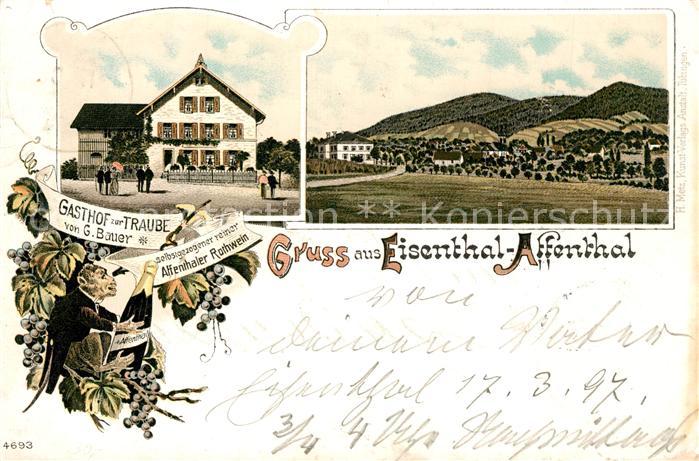 GASTHOF zur TRAUBE
von G. Bauer
selbstgezogener reiner
Affenthaler Rothwein
Affenthal
Gruss aus Eisenthal-Affenthal
von
deinem Vater
Eisenthal 17. 3. 97.
3/4 4 Uhr Nachmittags
H. Metz, Kunst-Verlags-Anstalt, Tübingen.
4693
www.ansichtskarten-center.de